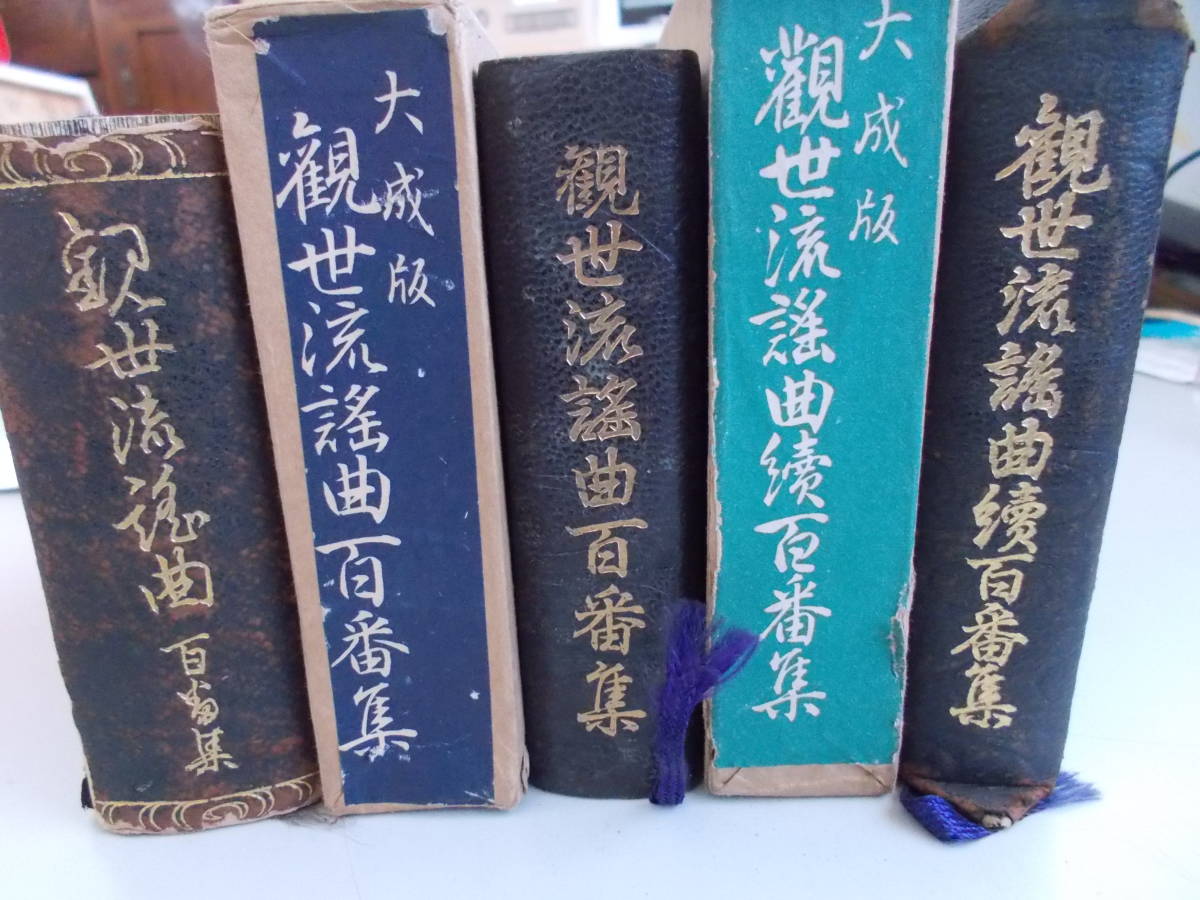 観世流謡曲
百番集
大成版
觀世流謠曲百番集
觀世流謠曲百番集
大成版
觀世流謠曲續百番集
觀世流謠曲續百番集